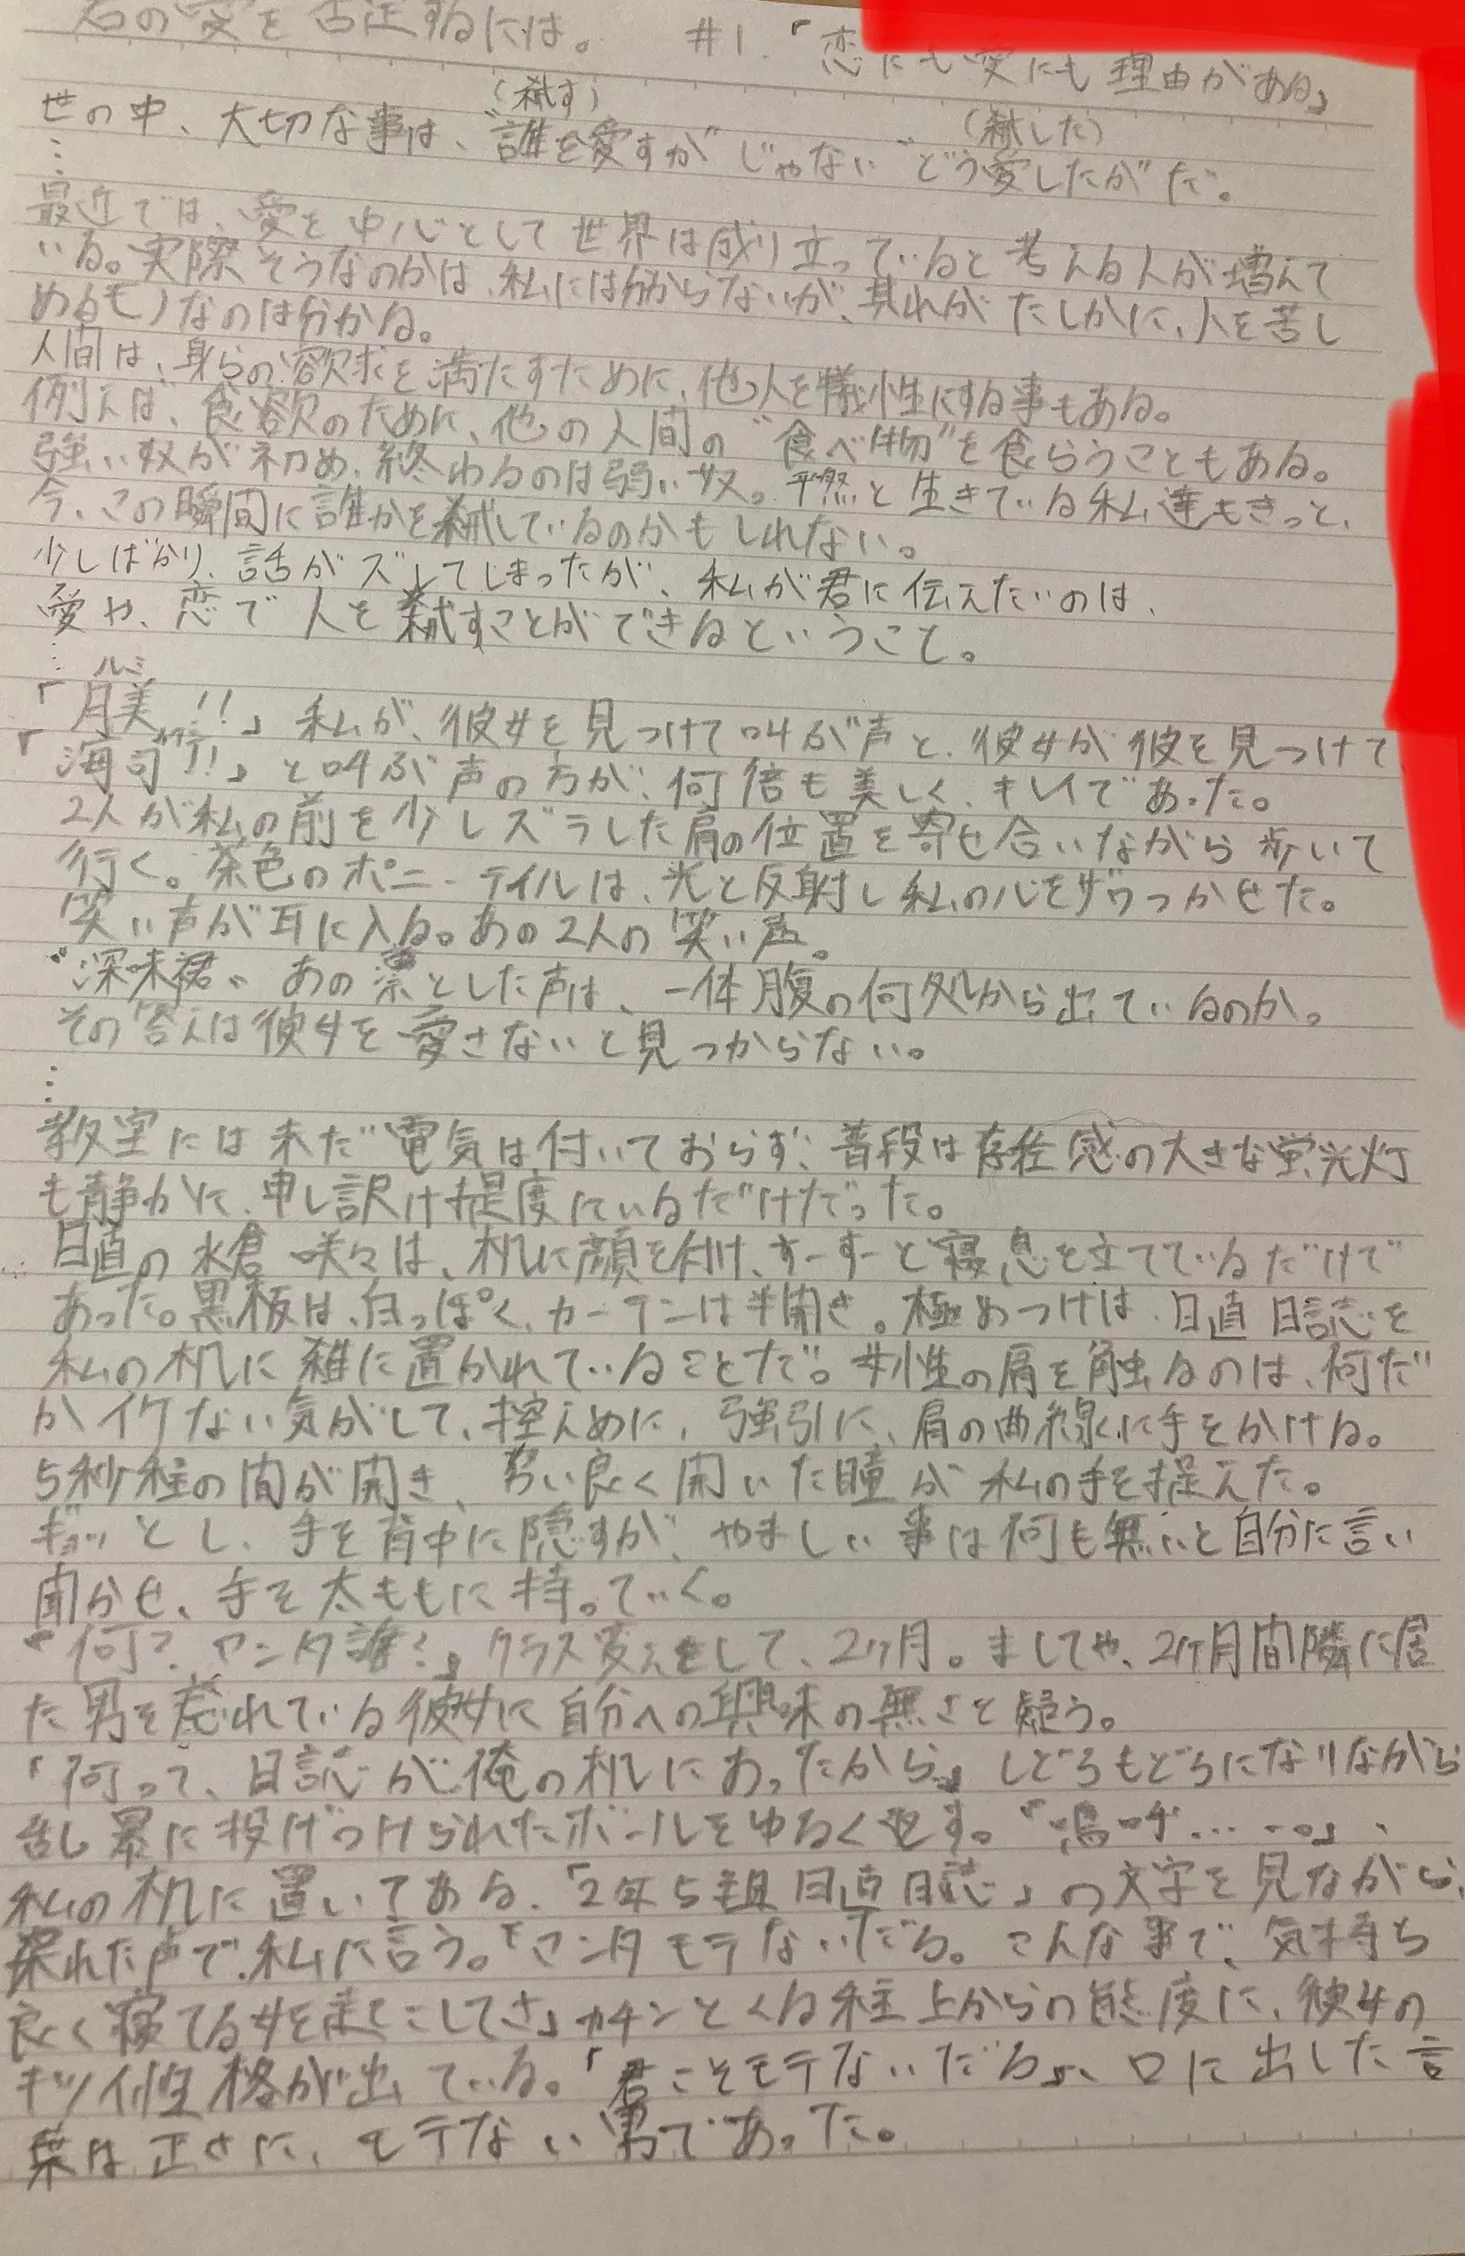 君の愛を否定するには。 #1.「恋にも愛にも理由がある」
(殺す) (殺した)
世の中、大切な事は、"誰を愛すか"じゃない"どう愛したか"だ。
⋮
最近では、愛を中心として世界は成り立っていると考える人が増えて
いる。実際そうなのかは、私には分からないが、其れがたしかに、人を苦し
めるモノなのは分かる。
人間は、身らの欲求を満たすために、他人を犠牲にする事もある。
例えば、食欲のために、他の人間の"食べ物"を食らうこともある。
強い奴が初め、終わるのは弱い奴。平然と生きている私達もきっと、
今、この瞬間に誰かを殺しているのかもしれない。
少しばかり、話がズレてしまったが、私が君に伝えたいのは、
愛や、恋で人を殺すことができるということ。
⋮
ルミ
「月美!!」私が、彼女を見つけて叫ぶ声と、彼女が彼を見つけて
「海司!!」と叫ぶ声の方が、何倍も美しく、キレイであった。
2人が私の前を少しズラした肩の位置を寄せ合いながら歩いて
行く。茶色のポニーテイルは、光と反射し私の心をザワつかせた。
笑い声が耳に入る。あの2人の笑い声。
"深味裙" あの凛とした声は、一体腹の何処から出ているのか。
その答えは彼女を愛さないと見つからない。
⋮
教室には未だ電気は付いておらず、普段は存在感の大きな蛍光灯
も静かに、申し訳け提度にいるだけだった。
日直の水倉咲々は、机に顔を付け、すーすーと寝息を立てているだけで
あった。黒板は、白っぽく、カーテンは半開き。極めつけは、日直日誌を
私の机に雑に置かれていることだ。女性の肩を触るのは、何だ
かイケない気がして、控えめに、強引に、肩の曲線に手をかける。
5秒程の間が開き、勢い良く開いた瞳が私の手を捉えた。
ギョッとし、手を背中に隠すが、やましい事は何も無いと自分に言い
聞かせ、手を太ももに持っていく。
「何?アンタ誰?」クラス変えをして、2ヶ月。ましてや、2ヶ月間隣に居
た男を忘れている彼女に自分への興味の無さを疑う。
「何って、日誌が俺の机にあったから」しどろもどろになりながら
乱暴に投げつけられたボールをゆるく返す。「嗚呼……。」、
私の机に置いてある、「2年5組日直日誌」の文字を見ながら、
呆れた声で、私に言う。「アンタモテないだろ。こんな事で、気持ち
良く寝てる女を起こしてさ」カチンとくる程上からの態度に、彼女の
キツイ性格が出ている。「君こそモテないだろ」、口に出した言
葉は正さに、モテない男であった。